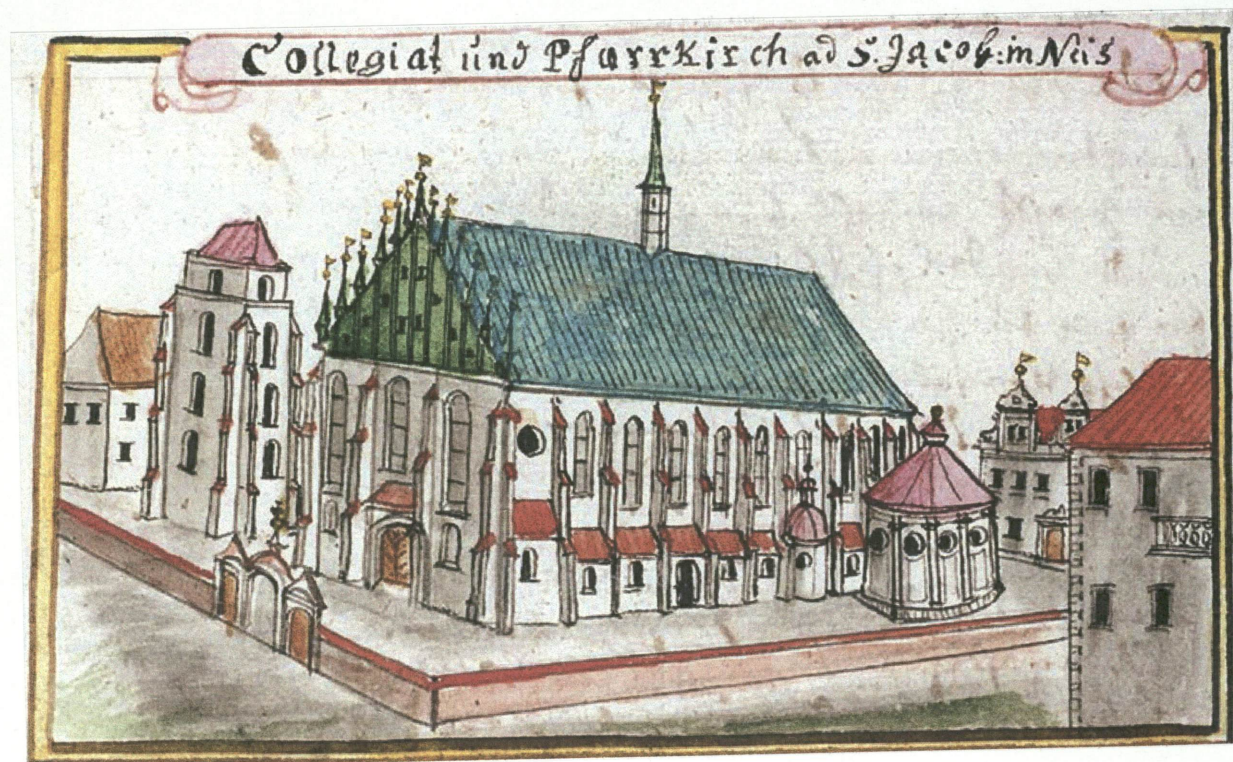 Collegiat und Pfarrkirch ad S. Jacob: in Neis